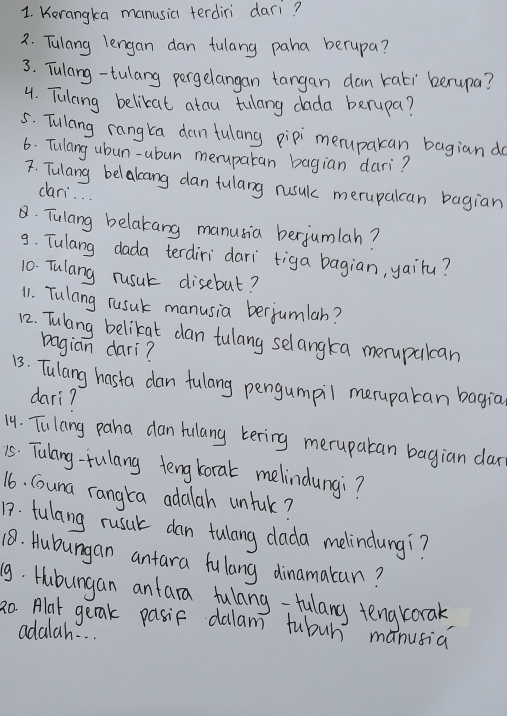 1. Kerangka manusia terdiri dari?
2. Tulang lengan dan tulang paha berupa?
3. Tulang-tulang pergelangan tangan dan kaki berupa?
4. Tulang belikat atau tulang dada berupa?
5. Tulang rangka dan tulang pipi merupakan bagian da
6. Tulang ubun-ubun merupakan bagian dari?
7. Tulang belakang dan tulang rusuk merupakan bagian
dari...
8. Tulang belakang manusia berjumlah?
9. Tulang dada terdiri dari tiga bagian, yaitu?
10. Tulang rusuk disebut?
11. Tulang rusuk manusia berjumlah?
12. Tulang belikat dan tulang selangka merupakan
bagian dari?
13. Tulang hasta dan tulang pengumpil merupakan bagia
dari?
14. Tulang paha dan tulang kering merupakan bagian dar
15. Tulang-tulang tengkorak melindungi?
16. Guna rangka adalah untuk?
17. tulang rusuk dan tulang dada melindungi?
18. Hubungan antara tulang dinamakan?
19. Hubungan antara tulang-tulang tengkorak
20. Alat gerak pasif dalam tubuh manusia
adalah...